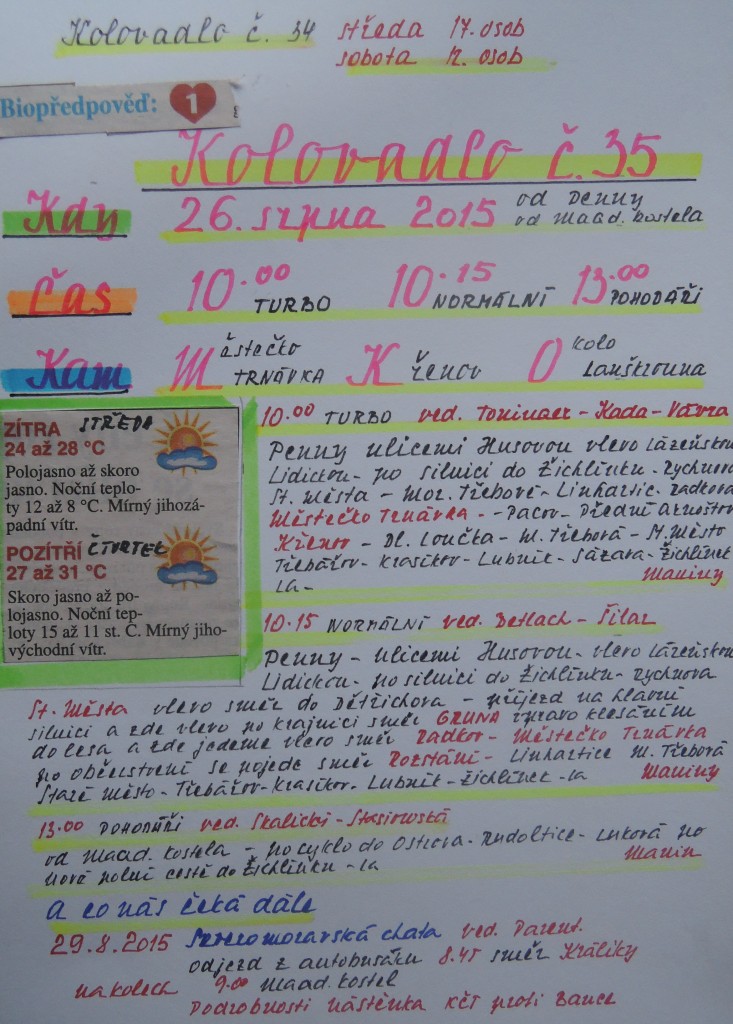 Kolovadlo č. 34 středa 17. osob
sobota 12. osob
Biopředpověď: 1
Kolovadlo č. 35
Kdy 26. srpna 2015 od Penny
od Maad. kostela
Čas 10.00 TURBO 10.15 NORMÁLNÍ 13.00 POHODÁŘI
Kam Městečko TRNÁVKA Křenov Okolo Lanškrouna
ZÍTRA STŘEDA
24 až 28 °C
Polojasno až skoro
jasno. Noční teplo-
ty 12 až 8 °C. Mírný jihozá-
padní vítr.
POZÍTŘÍ ČTVRTEK
27 až 31 °C
Skoro jasno až po-
lojasno. Noční tep-
loty 15 až 11 st. C. Mírný jiho-
východní vítr.
10.00 TURBO ved. - Kada - Vávra
Penny ulicemi Husovou vlevo Lázeňskou
Lidickou - po silnici do Žichlínku - Rychnova
St. Města - Mor. Třebové - Linhartic - Radkova
Městečko Trnávka - - Pacov - Přední Arnoštov
Křenov - Dl. Loučka - M. Třebová - St. Město
Třebařov - Krasíkov - Lubník - Sázava - Žichlínek
La - Maniny
10.15 NORMÁLNÍ ved. Betlach - Šilar
Penny - ulicemi Husovou - vlevo Lázeňskou
Lidickou - po silnici do Žichlínku - Rychnova
St. Města vlevo směr do Dětřichova - příjezd na hlavní
silnici a zde vlevo po krajnici směr GRUNA vpravo klesáním
do lesa a zde jedeme vlevo směr Radkov - Městečko Trnávka
po občerstvení se pojede směr Rozstání - Linhartice M. Třebová
Staré Město - Třebařov - Krasíkov. Lubník - Žichlínek - La Maniny
13.00 POHODÁŘI ved. Skalický - Stasiowská
od Maad. kostela - po cyklo do Ostrova - Rudoltice - Luková po
nové polní cestě do Žichlínku - La Manin
A co nás čeká dále
29.8.2015 Severomoravská chata ved. Parent.
odjezd z autobusáku 8.45 směr Králíky
na kolech 9.00 Maad. kostel
Podrobnosti nástěnka KČT proti Bance